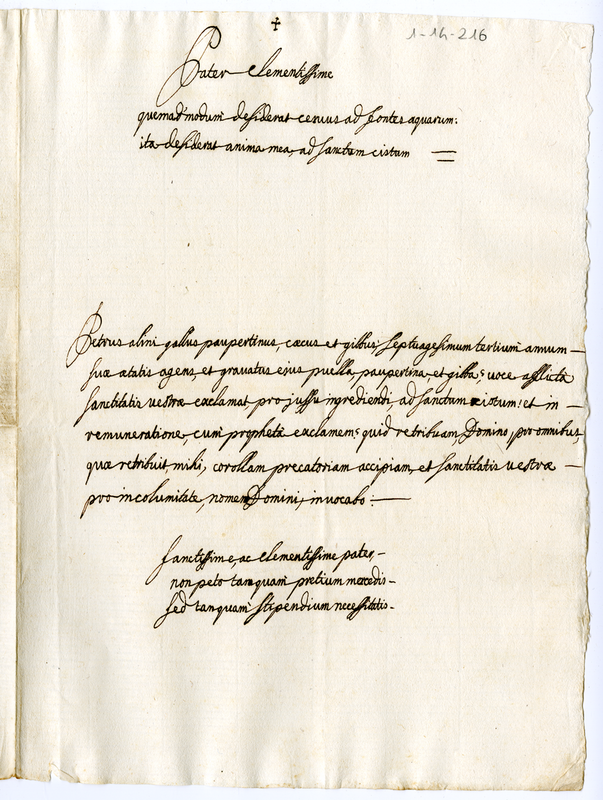 ✝
1-14-216
Pater Clementissime
quemadmodum desiderat cervus ad fontes aquarum:
ita desiderat anima mea, ad sanctum cistum =
Petrus alini gallus paupertinus, cæcus et gibbus, septuagesimum tertium annum —
suæ ætatis agens, et gravatus ejus puella, paupertina et gibba; voce afflicta
sanctitatis vestræ exclamat pro jussu ingrediendi, ad sanctum cistum: et in —
remuneratione cum propheta exclamem; quid retribuam, Domino, pro omnibus
quæ retribuit mihi, corollam precatoriam accipiam, et sanctitatis vestræ —
pro incolumitate, nomen Domini, invocabo: —
sanctissime, ac Clementissime pater, –
non peto tanquam pretium mercedis –
sed tanquam stipendium necessitatis –